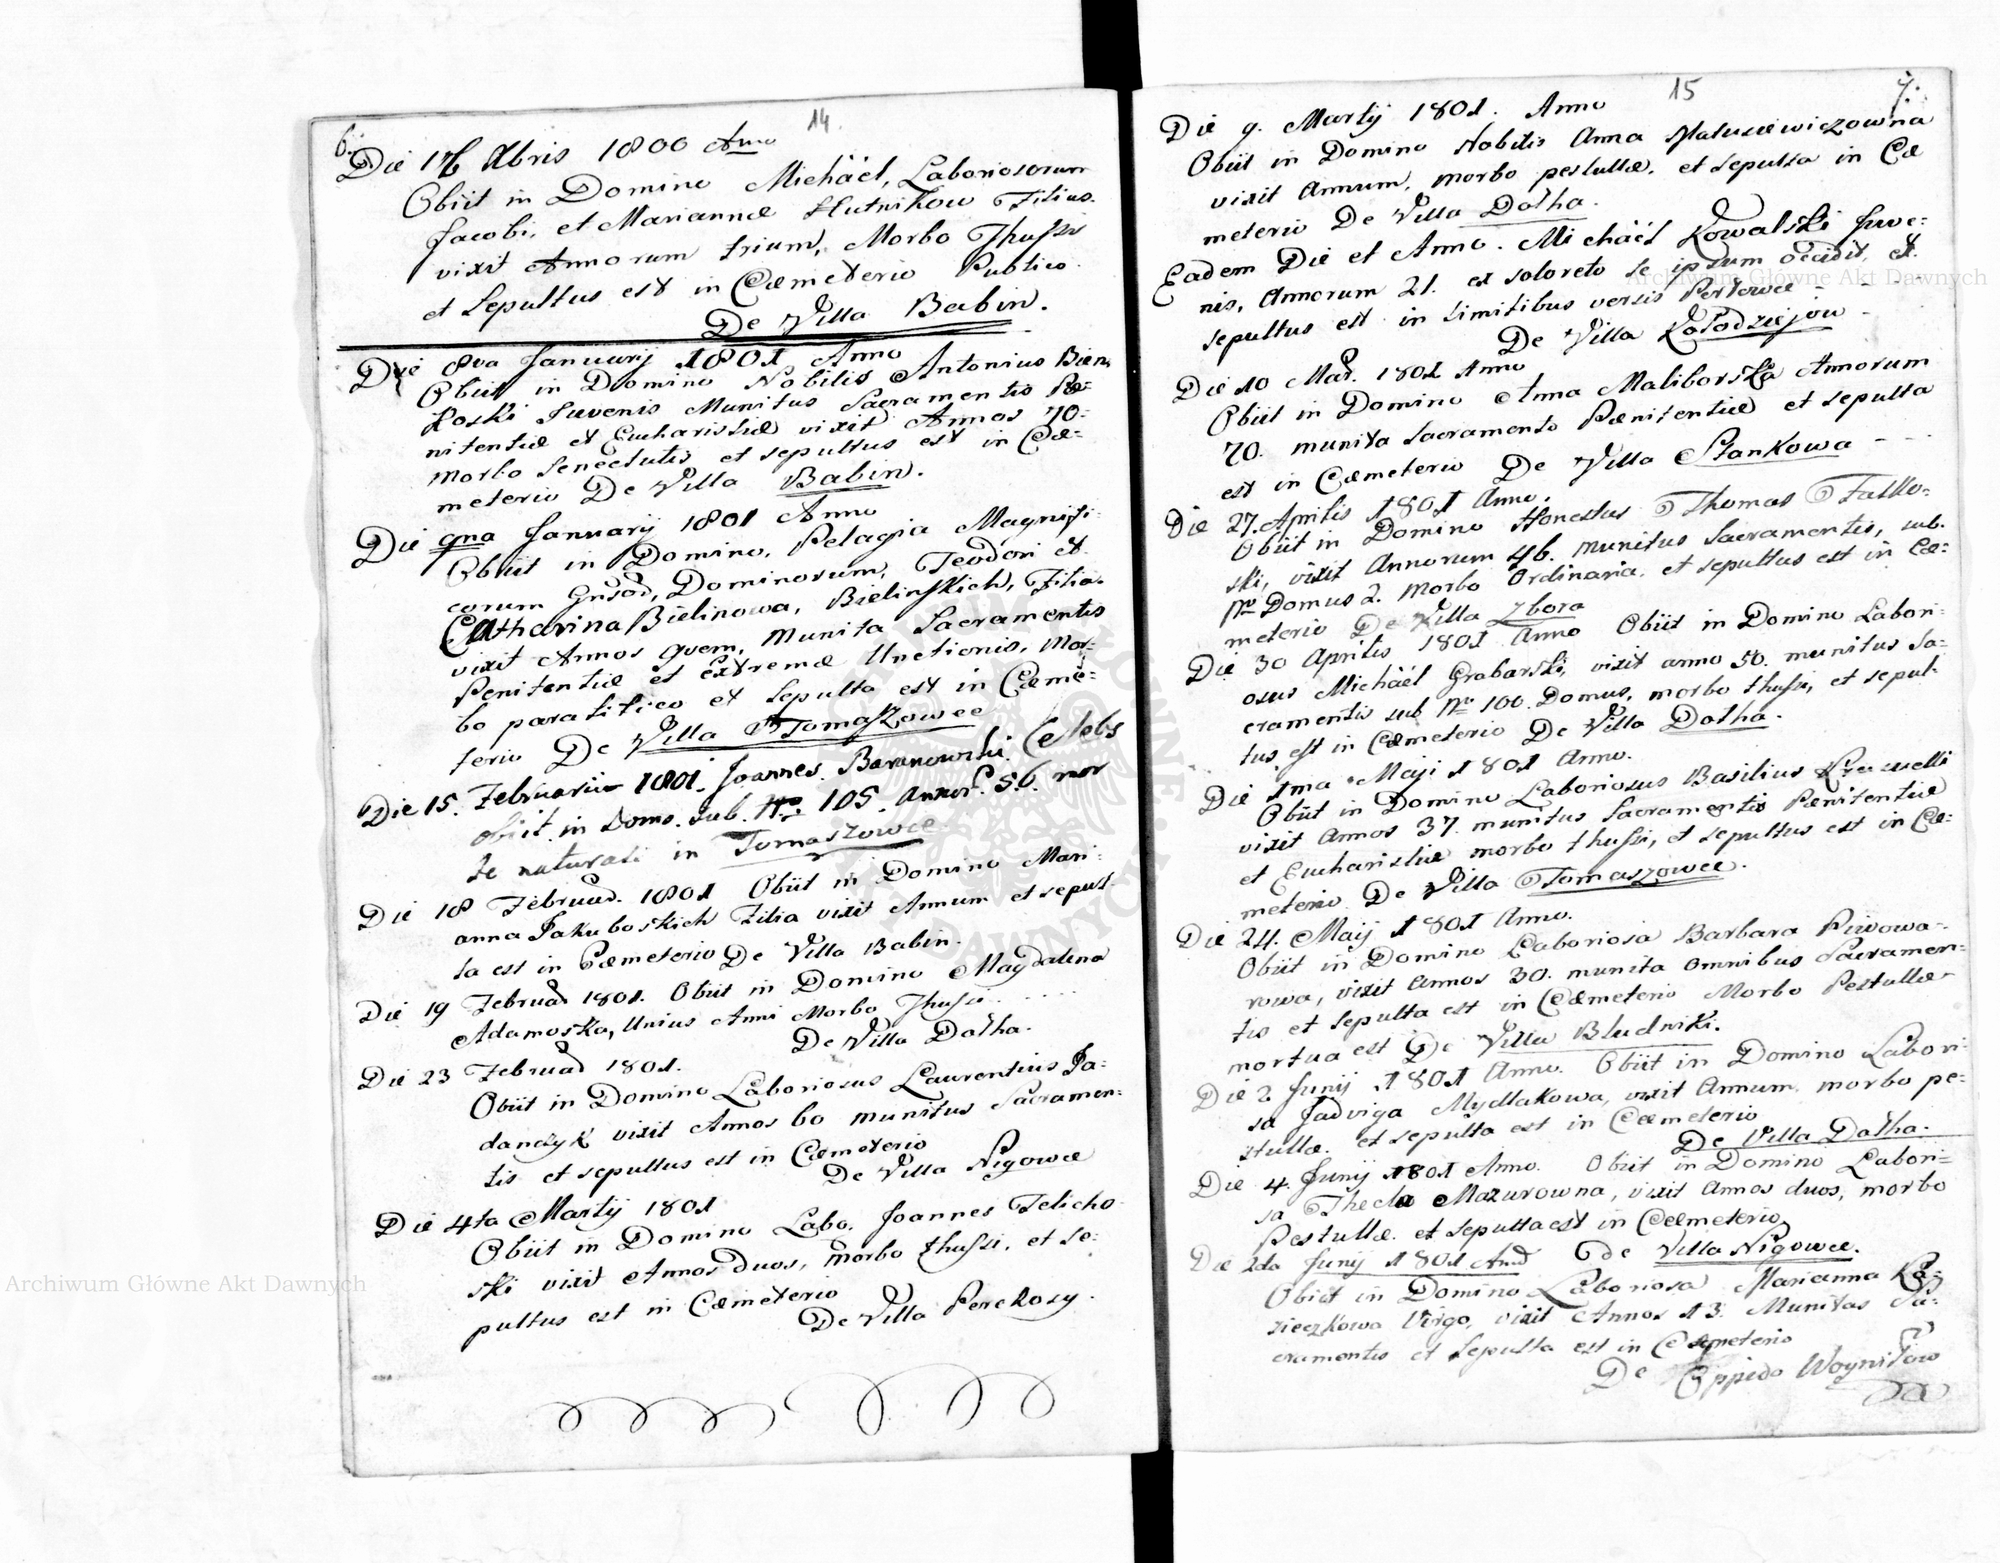 6.
14.
Die 17 Xbris 1800 Anno
Obiit in Domino Michäel, Laboriosorum
Jacobi, et Mariannæ Hutnikow Filius.
vixit Annorum trium, Morbo Thussis
et Sepultus est in Cœmeterio Publico.
De Villa Babin.
Die 8va Januarij 1801 Anno
Obiit in Domino Nobilis Antonius Bien
koski Juvenis Munitus Sacramentis Pœ=
nitentiæ et Eucharistiæ vixit Annos 70=
morbo Senectutis et sepultus est in Cœ=
meterio De Villa Babin.
Die 9na Januarij 1801 Anno
Obiit in Domino, Pelagia Magnifi=
corum Gnsod, Dominorum, Teodori et
Catharina Bielinowa, Bielinskich, Filia.
vixit Annos quem, Munita Sacramentis
Penitentiæ et extremæ Unctionis, Mor=
bo paralitico et Sepulta est in Cœme=
terio De Villa Tomaszowce
Die 15. Februarii 1801. Joannes Baranowski Celebs
obiit in Domo. sub. Nro 105. Annor. 56. mor
te naturali in Tomaszowce
Die 18 Februar. 1801 Obiit in Domino Mari=
anna Jakuboskich Filia vixit Annum et sepul=
ta est in Cœmeterio De Villa Babin.
Die 19 Februar 1801. Obiit in Domino Magdalena
Adamoska, Unius Anni Morbo Thussi.....
De Villa Dołha.
Die 23 Februar 1801.
Obiit in Domino Laboriosus Laurentius Ja=
danczyk vixit Annos 60 munitus Sacramen=
tis et sepultus est in Cœmeterio
De Villa Nigowce
Die 4ta Martij 1801
Obiit in Domino Labo. Joannes Felicho
ski vixit Annos duos, morbo thussi, et se=
pultus est in Cœmeterio
De Villa Perekosy.
15
7.
Die 9. Martij 1801. Anno
Obiit in Domino Nobilis Anna Matusiewiczowna
vixit Annum, morbo pestullæ, et sepulta in Cœ
meterio De Villa Dołha.
Eadem Die et Anno. Michäel Kowalski Juve=
nis, Annorum 21. ex soloreto se ipsum occidit, et
sepultus est in limitibus versis Perłowce - -
De Villa Kołodziejow
Die 10 Mar. 1801 Anno
Obiit in Domino Anna Maliborska Annorum
70. munita Sacramento Pœnitentiæ et sepulta
est in Cœmeterio De Villa Stankowa - - -
Die 27. Aprilis 1801 Anno.
Obiit in Domino Honestus Thomas Falko=
ski, vixit Annorum 46. munitus Sacramentis, sub.
Nro Domus 2. Morbo Ordinaria. et sepultus est in Cœ=
meterio De Villa Zbora
Die 30 Aprilis 1801 Anno Obiit in Domino Labori=
osus Michäel Grabarski, vixit anno 50. munitus Sa=
cramentis sub Nro 100. Domus, morbo thussi, et sepul=
tus est in Cœmeterio De Villa Dołha.
Die 1ma Maji 1801 Anno.
Obiit in Domino Laboriosus Basilius
vixit Annos 37. munitus Sacramentis Pœnitentiæ
et Eucharistiæ morbo thussi, et sepultus est in Cœ=
meterio De Villa Tomaszowce.
Die 24. Maij 1801 Anno.
Obiit in Domino Laboriosa Barbara Piwowa=
rowa, vixit Annos 30. munita Omnibus Sacramen=
tis et Sepulta est in Cœmeterio Morbo Pestullæ
mortua est De Villa Bludniki.
Die 2 Junij 1801 Anno. Obiit in Domino Labori=
sa Jadviga Mydlakowa, vixit Annum, morbo pe=
stullæ. et sepulta est in Cœmeterio
De Villa Dołha.
Die 4. Junij 1801 Anno. Obiit in Domino Labori=
sa Thecla Mazurowna, vixit Annos duos, morbo
Pestullæ. et Sepulta est in Cœmeterio
De Villa Nigowce.
Die 2da Junij 1801 And
Obiit in Domino Laboriosa Marianna Ka=
zieczkowa Virgo, vixit Annos 13. Munitas Sa=
cramentis et Sepulta est in Cœmeterio
De Oppido Woyniłow
Archiwum Główne Akt Dawnych
Archiwum Główne Akt Dawnych